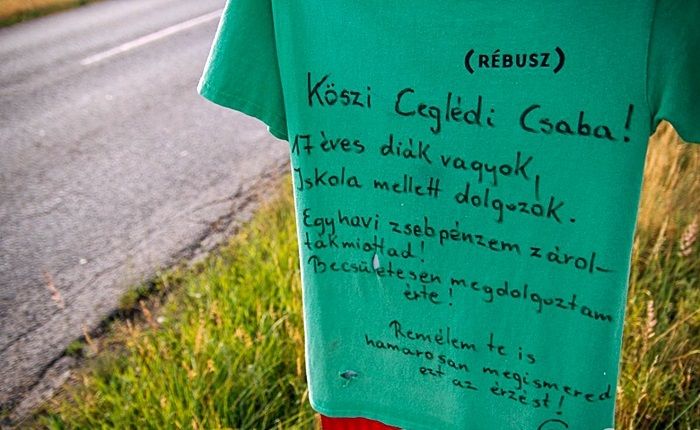 (RÉBUSZ)
Köszi Ceglédi Csaba!
17 éves diák vagyok,
Iskola mellett dolgozok.
Egyhavi zsebpénzem zárol-
ták miattad!
Becsületesen megdolgoztam
érte!
Remélem te is
hamarosan megismered
ezt az érzést!